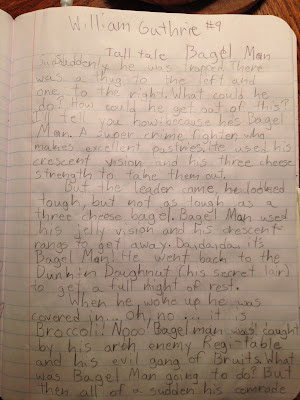 William Guthrie #9
Tall tale Bagel Man
Suddenly he was traped. There
was a thug to the left and
one to the right. What could he
do? How could he get out of this?
I'll tell you how: because he's Bagel
Man. A super crime fighter who
makes excellent pastries. He used his
crescent vision and his three cheese
strength to take them out.
But the leader came, he looked
tough, but not as tough as a
three cheese bagel. Bagel Man used
his jelly vision and his crescent
rangs to get away. Dadadada it's
Bagel Man! He went back to the
Dunkin Doughnut (his secret lair)
to get a full night of rest.
When he woke up he was
covered in... oh, no... it is
Broccoli! Nooo! Bagel man was caught
by his arch enemy Regi-table
and his evil gang of Bruits. What
was Bagel Man going to do? But
then all of a sudden his comrade